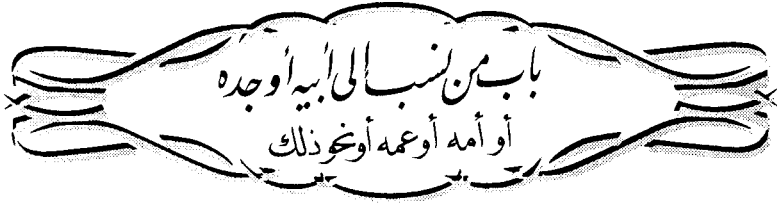 باب من نسب إلى أبيه أو جده
أو أمه أو عمه أو نحو ذلك